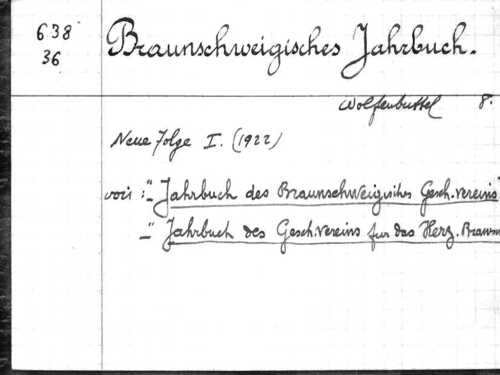 638
36
Braunschweigisches Jahrbuch.
Wolfenbuttel 8.
Neue Folge I. (1922)
voir : "Jahrbuch des Braunschweigisches Gesch.vereins"
—" Jahrbuch des Gesch.vereins fur das Herz. Braunm